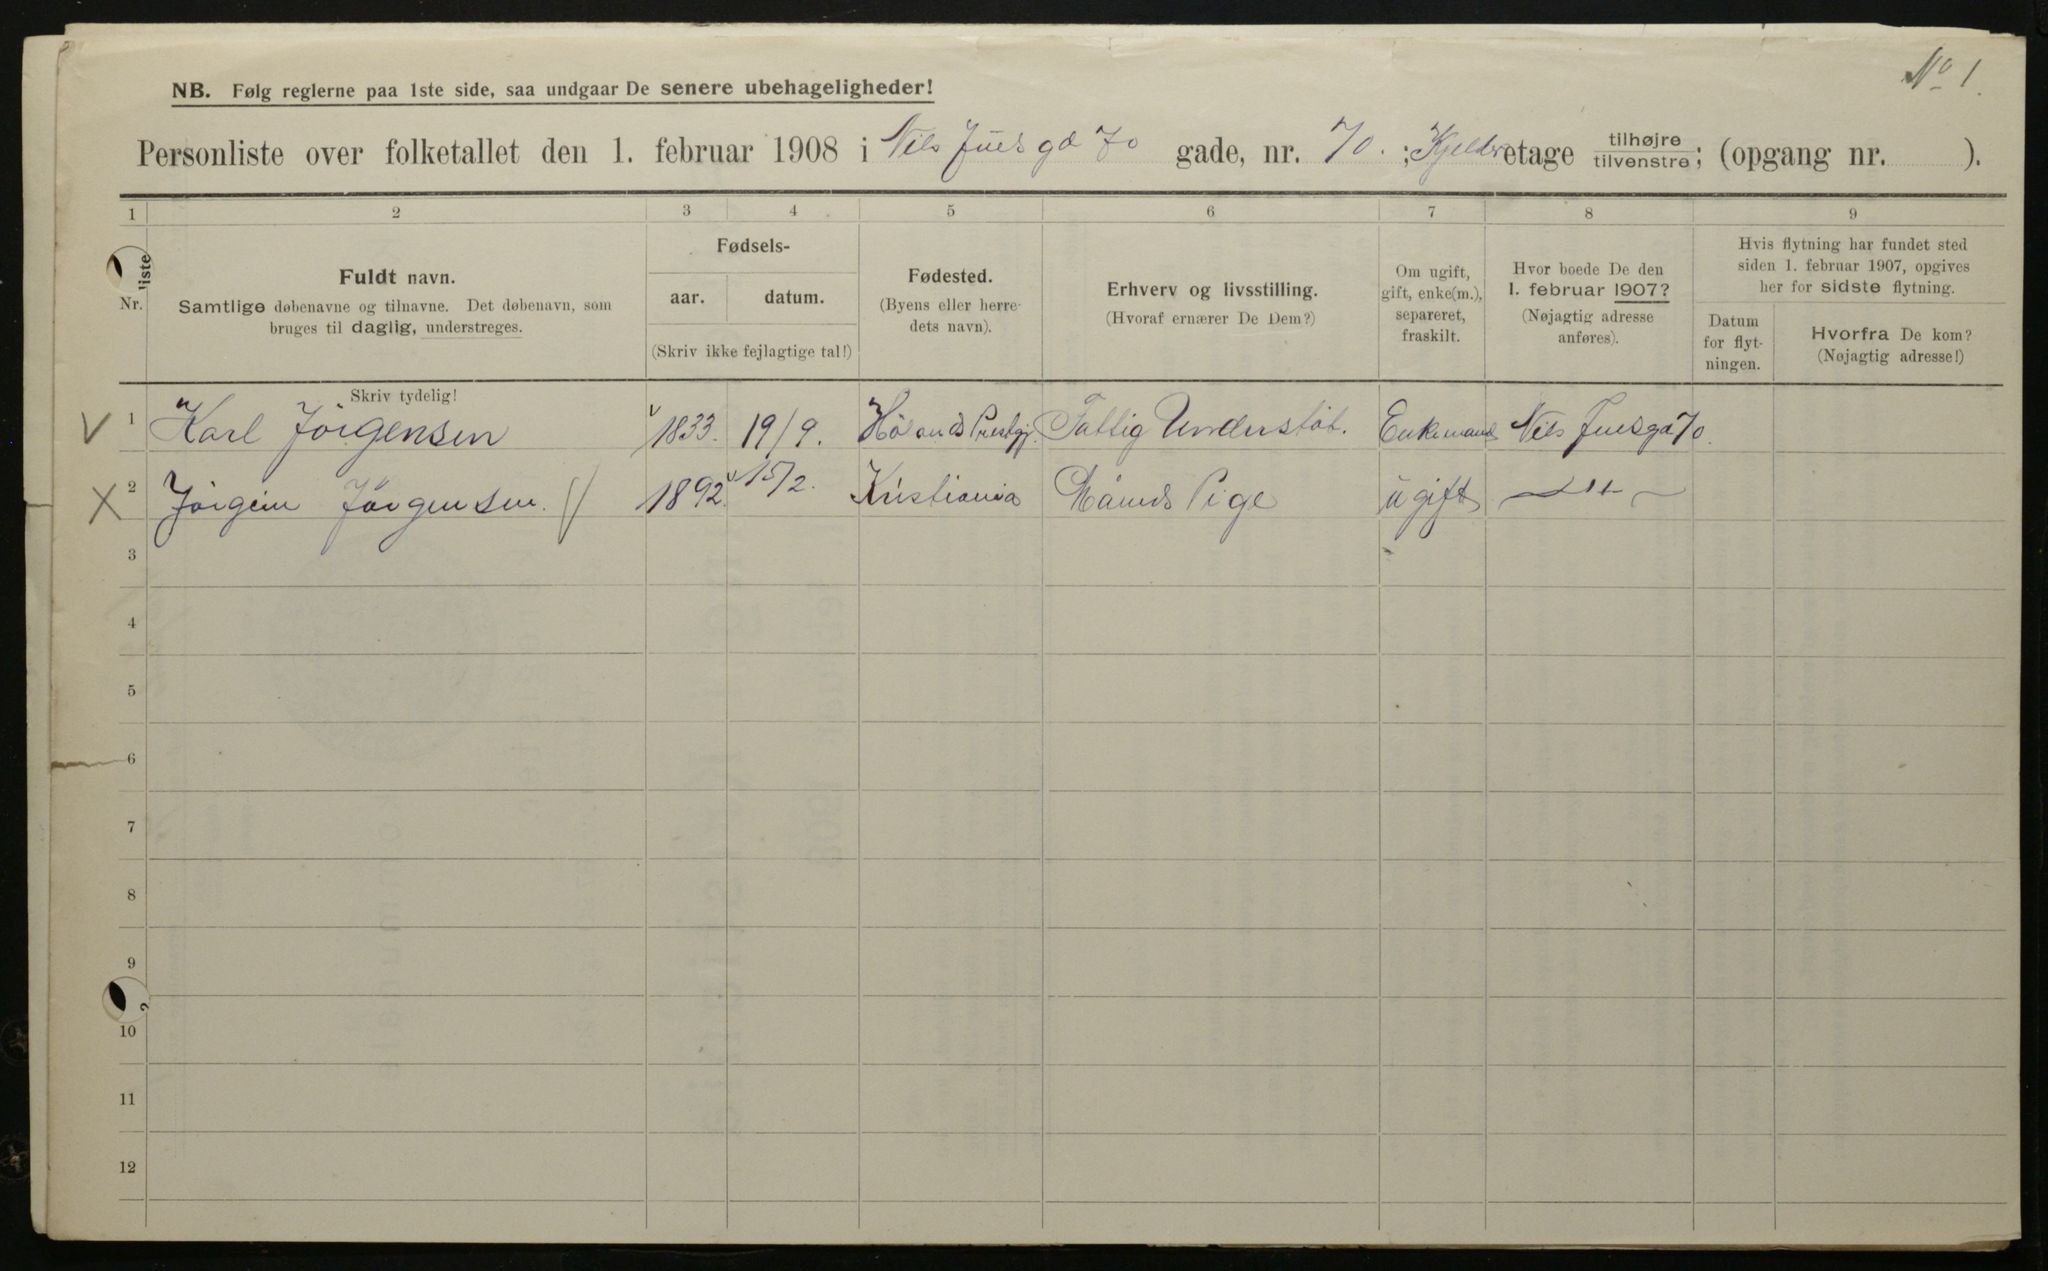 No 1.
NB. Følg reglerne paa 1ste side, saa undgaar De senere ubehageligheder!
Personliste over folketallet den 1. februar 1908 i Nils Juels gd 70 gade, nr. 70. ; Kjelder etage tilhøjre tilvenstre; (opgang nr. ).
1 2 3 4 5 6 7 8 9
liste
Nr.
Fuldt navn.
Samtlige døbenavne og tilnavne. Det døbenavn, som
bruges til daglig, understreges.
Skriv tydelig!
Fødsels-
aar. datum.
(Skriv ikke fejlagtige tal!)
Fødested.
(Byens eller herre-
dets navn).
Erhverv og livsstilling.
(Hvoraf ernærer De Dem?)
Om ugift,
gift, enke(m.),
separeret,
fraskilt.
Hvor boede De den
1. februar 1907?
(Nøjagtig adresse
anføres).
Hvis flytning har fundet sted
siden 1. februar 1907, opgives
her for sidste flytning.
Datum
for flyt-
ningen.
Hvorfra De kom?
(Nøjagtig adresse!)
V 1 Karl Jörgensen 1833. 19/9. Hölands Prestgj. Fattig Understöt. Enkemand Nils Juelsgd 70.
X 2 Jörgen Jörgensen. 1892. 15/2. Kristiania Pige ugift — " —
3
4
5
6
7
8
9
10
11
12